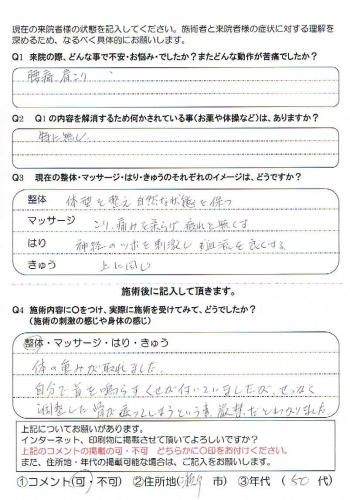 現在の来院者様の状態を記入してください。施術者と来院者様の症状に対する理解を
深めるため、なるべく具体的にお願いします。
Q1 来院の際、どんな事で不安・お悩み・でしたか？またどんな動作が苦痛でしたか？
腰痛、肩こり
Q2 Q1の内容を解消するため何かされている事（お薬や体操など）は、ありますか？
特に無し
Q3 現在の整体・マッサージ・はり・きゅうのそれぞれのイメージは、どうですか？
整体 体型を整え自然な状態を保つ
マッサージ こり、痛みを柔らげ疲れを無くす
はり 神経のツボを刺激し血流を良くする
きゅう 上に同じ
施術後に記入して頂きます。
Q4 施術内容に〇をつけ、実際に施術を受けてみて、どうでしたか？
（施術の刺激の感じや身体の感じ）
整体・マッサージ・はり・きゅう
体の重みが取れました。
自分で首を鳴らすくせが付いていましたが、せっかく
調整した骨が戻ってしまうという事、厳禁だとわかりました。
上記についてお願いがあります。
インターネット、印刷物に掲載させて頂いてよろしいですか？
上記のコメントの掲載の可・不可 どちらかに〇印をお付けください。
また、住所地・年代の掲載可能な場合は、ご記入をお願いします。
①コメント（可・不可） ②住所地（ 市） ③年代（ 50 代）